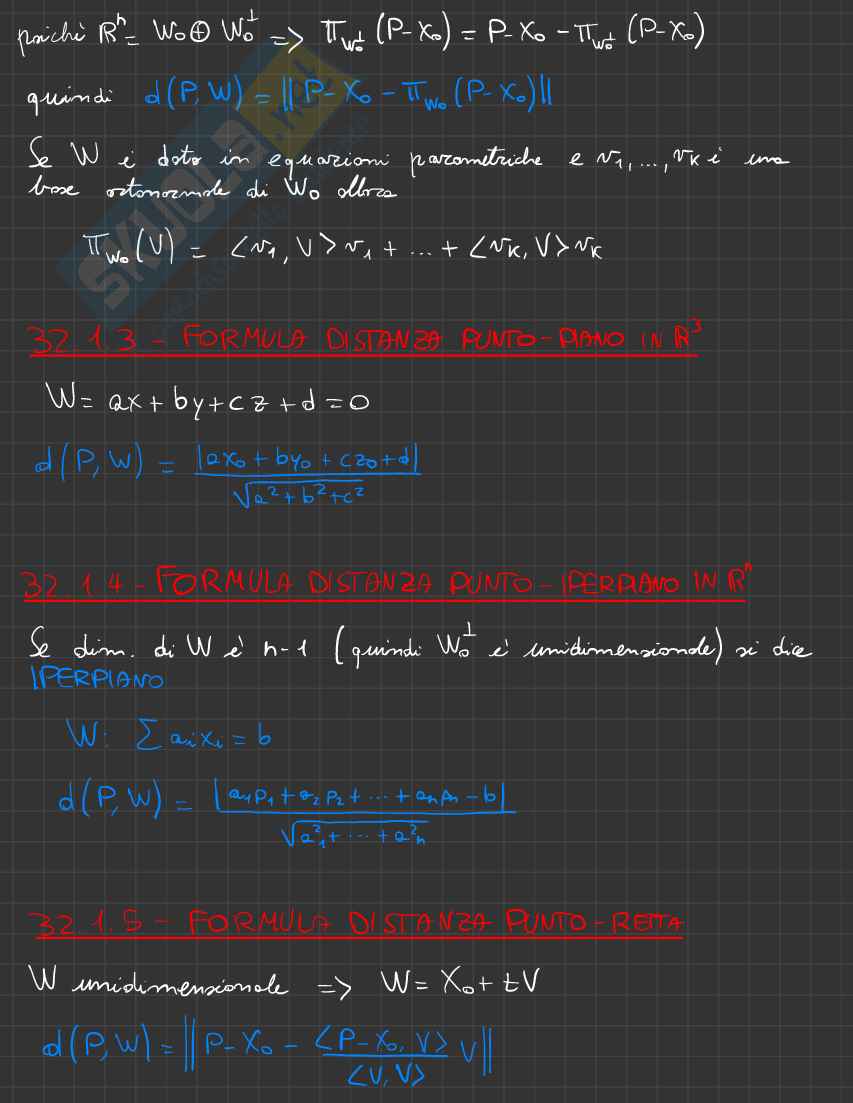 poichè ℝⁿ = W₀ ⊕ W₀^⊥ => π_{W₀^⊥} (P-X₀) = P-X₀ - π_{W₀^⊥} (P-X₀)
quindi d(P, W) = || P-X₀ - π_{W₀} (P-X₀) ||
Se W è dato in equazioni parametriche e v₁, ..., vₖ è una
base ortonormale di W₀ allora
π_{W₀}(V) = <v₁, V> v₁ + ... + <vₖ, V> vₖ
32.1.3 - FORMULA DISTANZA PUNTO-PIANO IN ℝ³
W = ax + by + cz + d = 0
d(P, W) = |ax₀ + by₀ + cz₀ + d| / √(a² + b² + c²)
32.1.4 - FORMULA DISTANZA PUNTO-IPERPIANO IN ℝⁿ
Se dim. di W è n-1 (quindi W₀^⊥ è unidimensionale) si dice
IPERPIANO
W: ∑ aᵢxᵢ = b
d(P, W) = |a₁p₁ + a₂p₂ + ... + aₙpₙ - b| / √(a₁² + ... + a²ₙ)
32.1.5 - FORMULA DISTANZA PUNTO-RETTA
W unidimensionale => W = X₀ + tV
d(P, W) = || P-X₀ - <P-X₀, V> / <V, V> V ||
SKUOLA.net